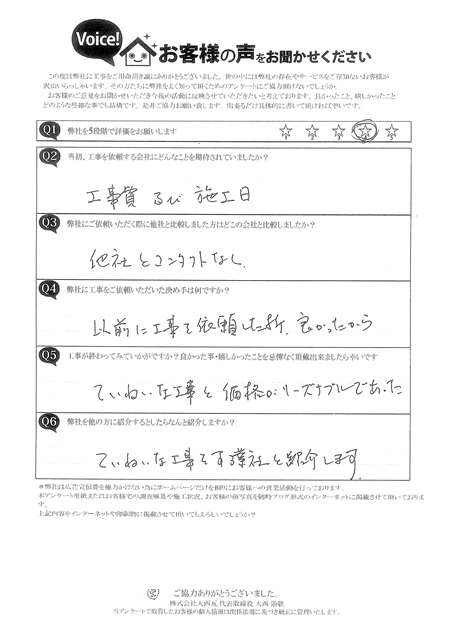 Voice!
お客様の声をお聞かせください
この度は弊社に工事をご用命頂き誠にありがとうございました。世の中には弊社の存在やサービスをご存知ないお客様が
沢山いらっしゃいます。その方たちに弊社をよく知って頂くためのアンケートにご協力頂けないでしょうか。
お客様のご意見をお聞かせいただき今後の活動に反映させていただきたいと考えております。良かったこと、嬉しかったこと
どのような些細な事でも結構です。是非ご協力お願い致します。出来るだけ具体的に書いて頂ければ幸いです。
Q1 弊社を5段階で評価をお願いします
1 2 3 4 5
Q2 当初、工事を依頼する会社にどんなことを期待されていましたか?
工事費 及び 施工日
Q3 弊社にご依頼いただく際に他社と比較しました方はどこの会社と比較しましたか?
他社とコンタクトなし
Q4 弊社に工事をご依頼いただいた決め手は何ですか?
以前に工事を依頼した折、良かったから
Q5 工事が終わってみていかがですか?良かった事・嬉しかったことを忌憚なく頂戴出来ましたら幸いです
ていねいな工事と価格がリーズナブルであった
Q6 弊社を他の方に紹介するとしたらなんと紹介しますか?
ていねいな工事をする業社と紹介します
※弊社は広告宣伝費を極力かけない為にホームページだけを頼りにお客様への営業活動を行っております。
本アンケート用紙またはお客様宅の調査風景や施工状況、お客様の顔写真を随時ブログ形式のインターネットに掲載させて頂いております。
上記内容をインターネットや印刷物に掲載させて頂いてもよろしいでしょうか?
ご協力ありがとうございました。
株式会社大西瓦 代表取締役 大西
当アンケートで取得したお客様の個人情報は関係法規に基づき厳正に管理いたします。